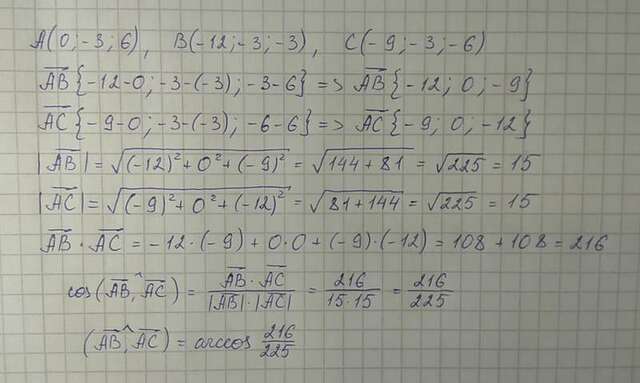 A(0;-3;6), B(-12;-3;-3), C(-9;-3;-6)
AB{-12-0;-3-(-3);-3-6} => AB{-12; 0; -9}
AC{-9-0;-3-(-3);-6-6} => AC{-9; 0; -12}
|AB| = √((-12)² + 0² + (-9)²) = √(144 + 81) = √225 = 15
|AC| = √((-9)² + 0² + (-12)²) = √(81 + 144) = √225 = 15
AB · AC = -12·(-9) + 0·0 + (-9)·(-12) = 108 + 108 = 216
cos(AB,^AC) = AB · AC / |AB|·|AC| = 216/15·15 = 216/225
(AB,^AC) = arccos 216/225